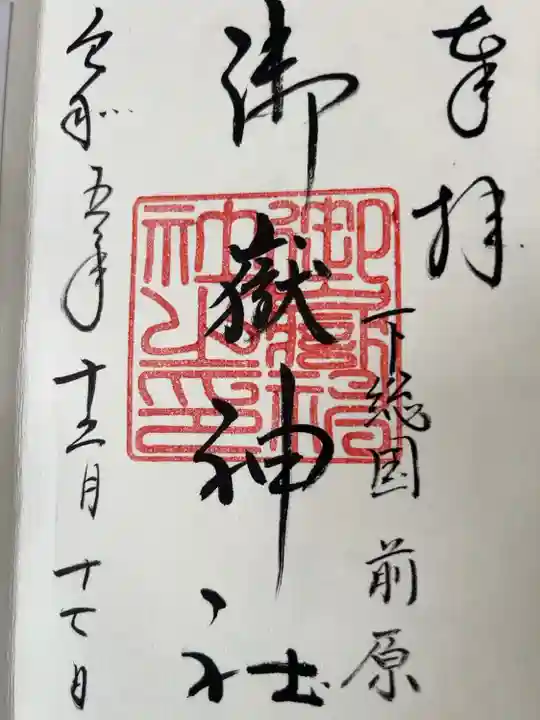 奉拝
下総国 前原
御嶽神社
御嶽神社之印
令和五年 十二月 十六日